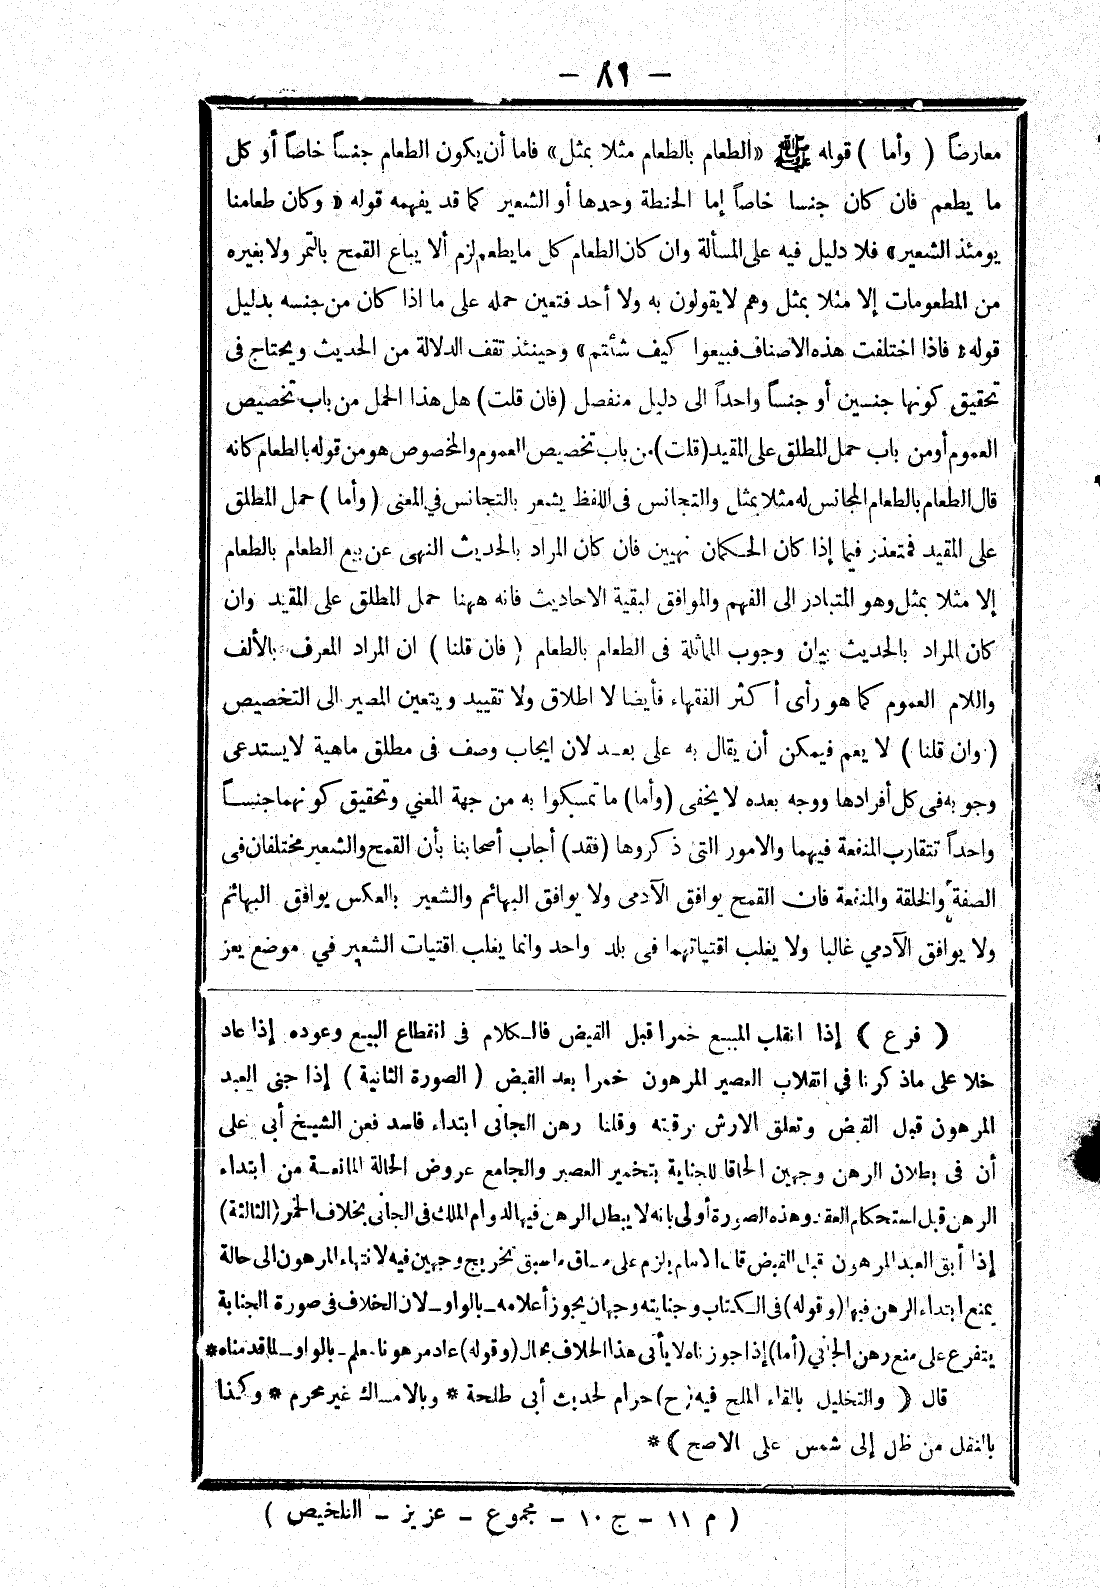 — ٨٩ —
معارضاً ( وأما ) قوله ﷺ «الطعام بالطعام مثلا بمثل» فاما أن يكون الطعام جنساً خاصاً أو كل
ما يطعم فان كان جنسا خاصاً إما الحنطة وحدها أو الشعير كما قد يفهمه قوله « وكان طعامنا
يومئذ الشعير» فلا دليل فيه على المسألة وان كان الطعام كل ما يطعم لزم ألا يباع القمح بالتمر ولا بغيره
من المطعومات إلا مثلا بمثل وهم لا يقولون به ولا أحد فتعين حمله على ما اذا كان من جنسه بدليل
قوله « فاذا اختلفت هذه الاصناف فبيعوا كيف شئتم» وحينئذ تقف الدلالة من الحديث ويحتاج فى
تحقيق كونها جنسين أو جنساً واحداً الى دليل منفصل (فان قلت) هل هذا الحمل من باب تخصيص
العموم أو من باب حمل المطلق على المقيد (قلت) من باب تخصيص العموم والمخصوص هو من قوله بالطعام كانه
قال الطعام بالطعام المجانس له مثلا بمثل والتجانس فى اللفظ يشعر بالتجانس في المعنى ( وأما ) حمل المطلق
على المقيد فمتعذر فيما إذا كان الحكمان نهيين فان كان المراد بالحديث النهى عن بيع الطعام بالطعام
إلا مثلا بمثل وهو المتبادر الى الفهم والموافق لبقية الاحاديث فانه ههنا حمل المطلق على المقيد وان
كان المراد بالحديث بيان وجوب المماثلة فى الطعام بالطعام ( فان قلنا ) ان المراد المعرف بالألف
واللام العموم كما هو رأى أكثر الفقهاء فأيضا لا اطلاق ولا تقييد ويتعين المصير الى التخصيص
( وان قلنا ) لا يعم فيمكن أن يقال به على بعد لان ايجاب وصف فى مطلق ماهية لا يستدعى
وجوبه فى كل أفرادها ووجه بعده لا يخفى (وأما) ما تمسكوا به من جهة المعني وتحقيق كونهما جنساً
واحداً تتقارب المنفعة فيهما والامور التى ذكروها (فقد) أجاب أصحابنا بأن القمح والشعير مختلفان فى
الصفة والخلقة والمنفعة فان القمح يوافق الآدمى ولا يوافق البهائم والشعير بالعكس يوافق البهائم
ولا يوافق الآدمي غالبا ولا يغلب اقتياتهما فى بلد واحد وانما يغلب اقتيات الشعير في موضع يعز
( فرع ) إذا انقلب المبيع خمرا قبل القبض فالكلام فى انقطاع البيع وعوده إذا عاد
خلا على ما ذكرنا في انقلاب العصير المرهون خمرا بعد القبض ( الصورة الثانية ) إذا جنى العبد
المرهون قبل القبض وتعلق الارش برقبته وقلنا رهن الجانى ابتداء فاسد فعن الشيخ أبى على
أن فى بطلان الرهن وجهين الحاقا للجناية بتخمير العصير والجامع عروض الحالة المانعة من ابتداء
الرهن قبل استحكام العقد وهذه الصورة أولى بانه لا يبطل الرهن فيها لدوام الملك فى الجانى بخلاف الخمر (الثالثة)
إذا أبق العبد المرهون قبل القبض قال الامام يلزم على مساق ما سبق تخريج وجهين فيه لانتهاء المرهون الى حالة
يمنع ابتداء الرهن فيها (وقوله) فى الكتاب وجنايته وجهان يجوز أعلامه ـ بالواو ـ لان الخلاف فى صورة الجناية
يتفرع على منع رهن الجاني (أما) إذا جوزناه لا يأتى هذا الخلاف بحال (وقوله) عاد مرهونا معلم ـ بالواو ـ لما قدمناه *
قال ( والتخليل بالقاء الملح فيه (ح) حرام لحديث أبى طلحة * وبالامساك غير محرم * وكذا
بالنقل من ظل إلى شمس على الاصح ) *
( م ١١ — ج ١٠ — مجموع — عزيز — التلخيص )